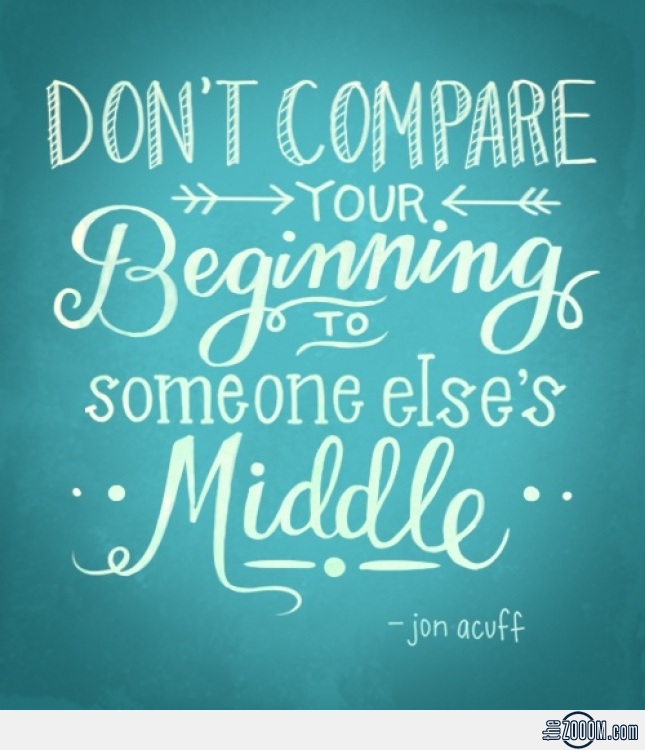 DON'T COMPARE
YOUR
Beginning
TO
someone else's
Middle
- jon acuff
the ZOOOM.com